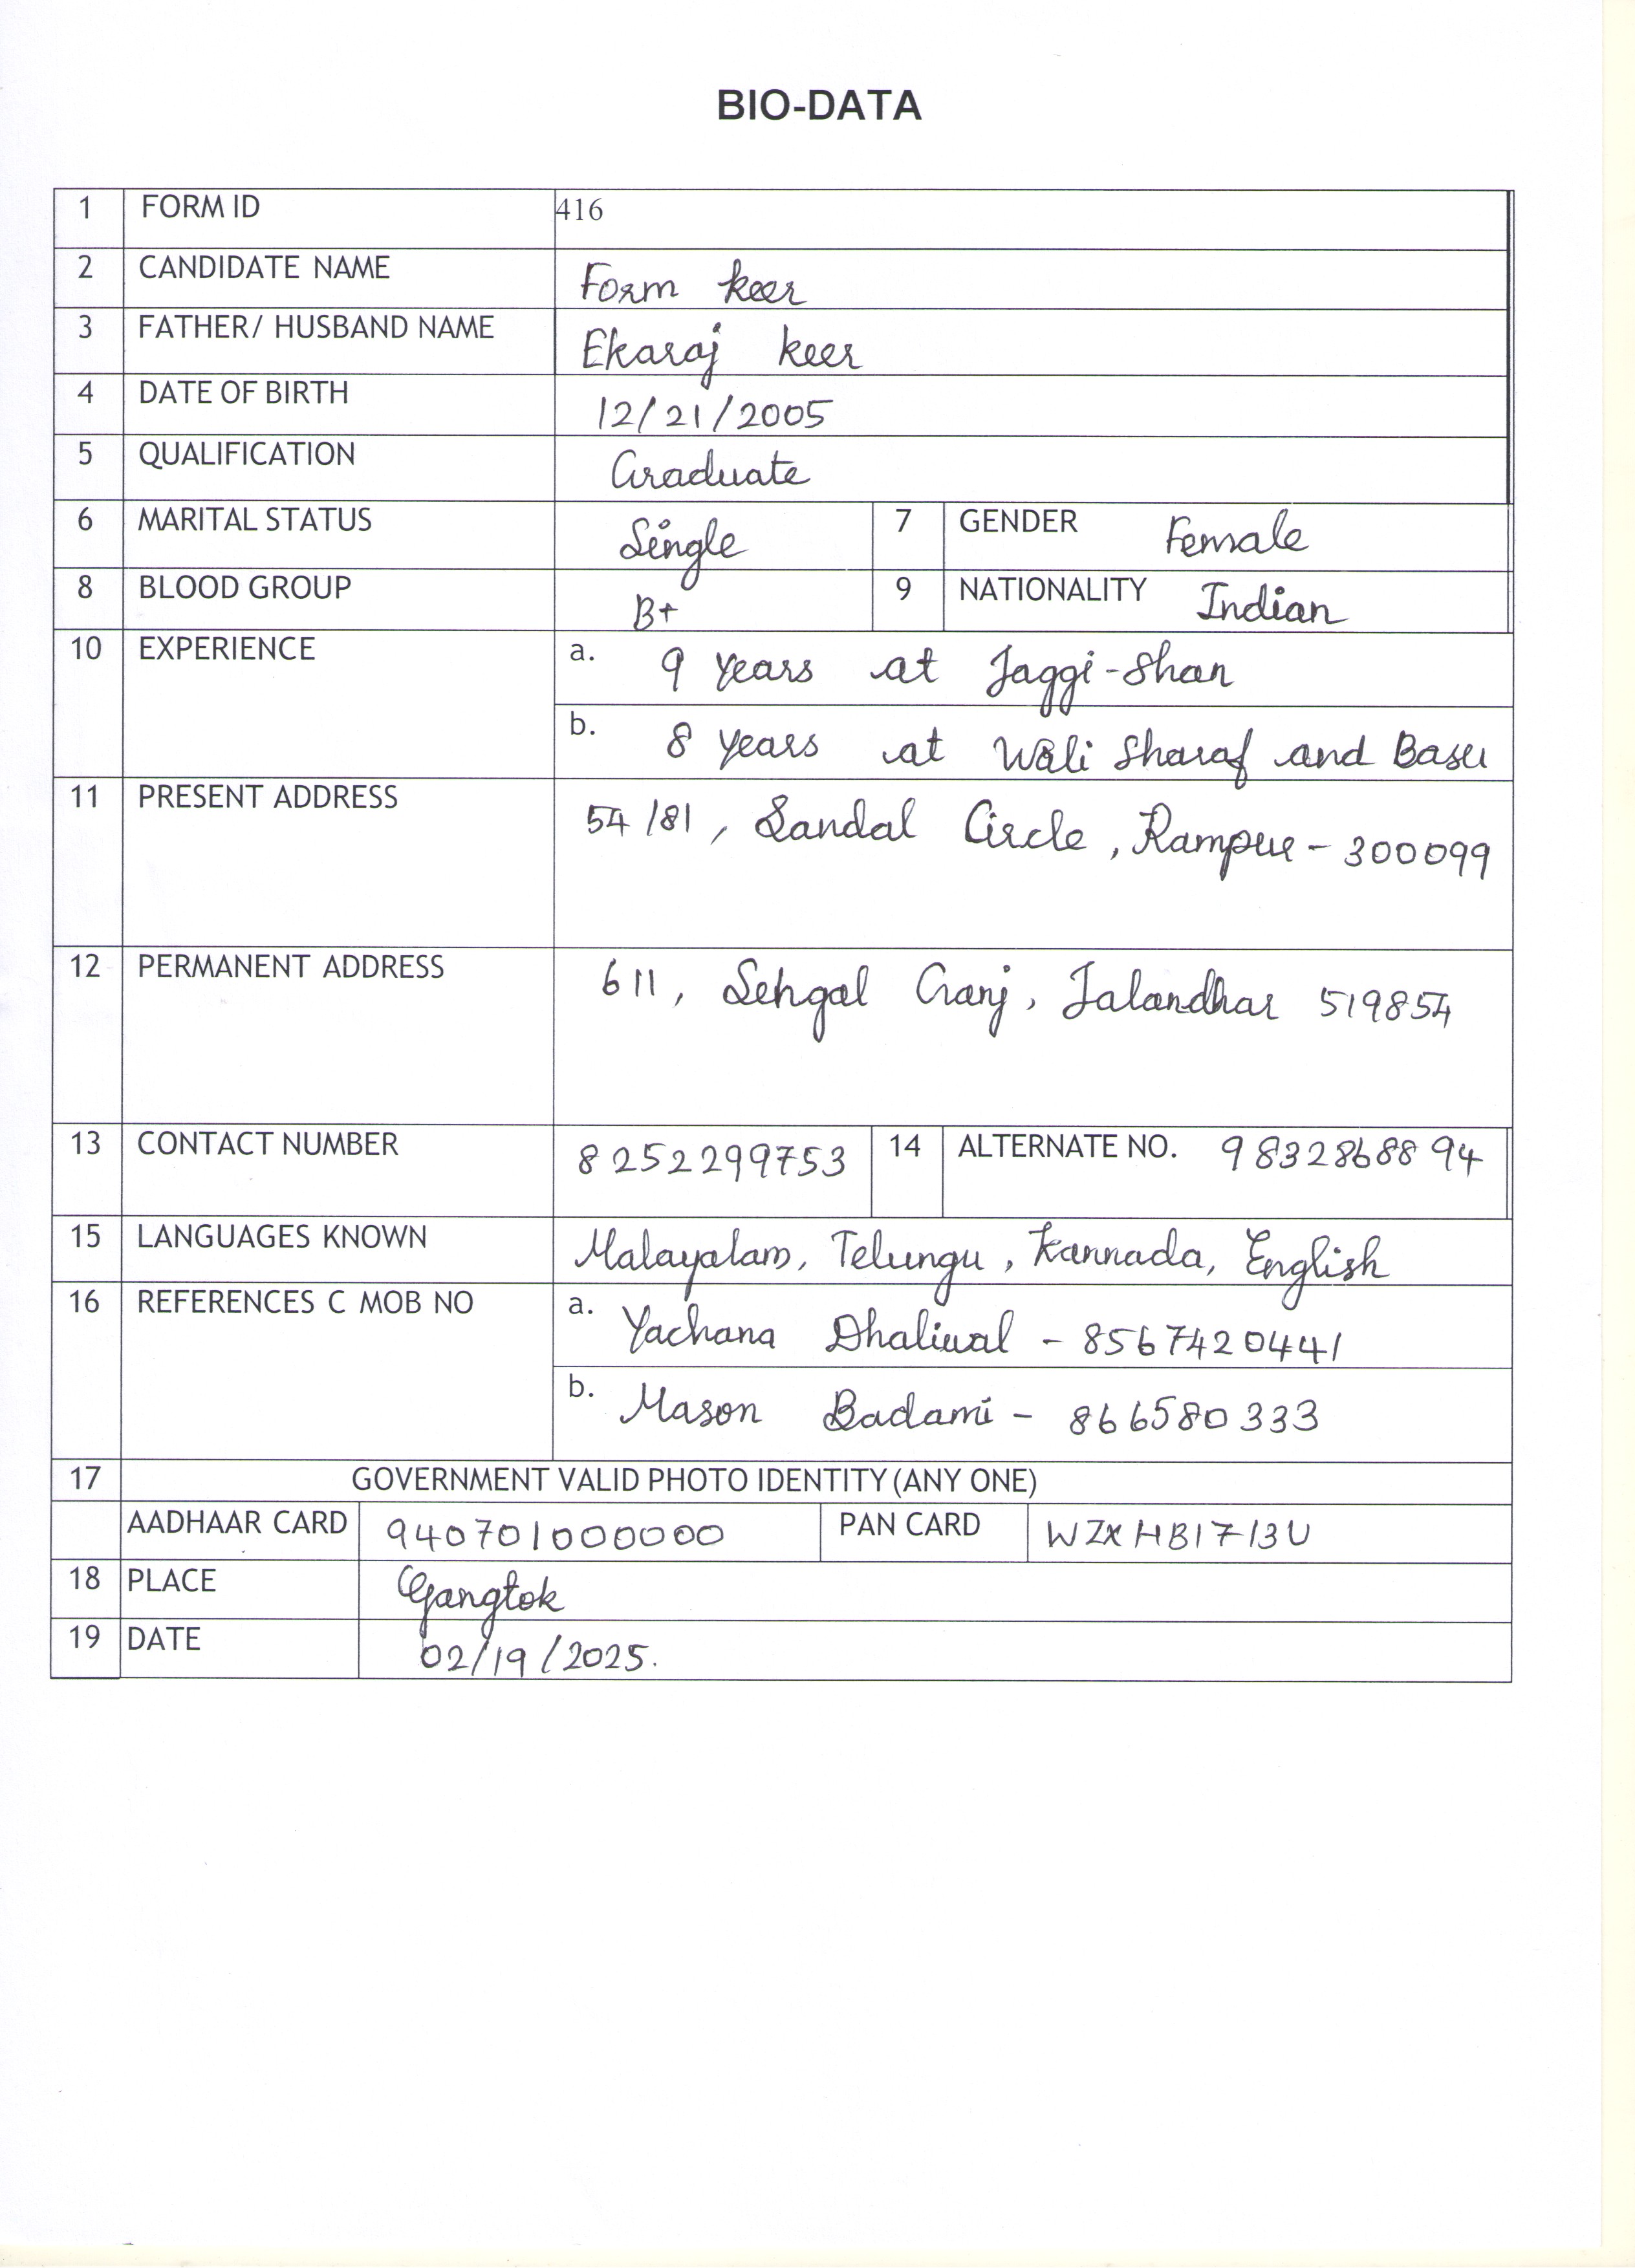 BIO-DATA
1 FORM ID 416
2 CANDIDATE NAME Form keer
3 FATHER/ HUSBAND NAME Ekaraj keer
4 DATE OF BIRTH 12/21/2005
5 QUALIFICATION Graduate
6 MARITAL STATUS Single 7 GENDER Female
8 BLOOD GROUP B+ 9 NATIONALITY Indian
10 EXPERIENCE a. 9 years at Jaggi-Shan
b. 8 years at Wali Sharaf and Basu
11 PRESENT ADDRESS 54/81, Sandal Circle, Rampur - 300099
12 PERMANENT ADDRESS 611, Sehgal Ganj, Jalandhar 519854
13 CONTACT NUMBER 8252299753 14 ALTERNATE NO. 9832868894
15 LANGUAGES KNOWN Malayalam, Telungu, Kannada, English
16 REFERENCES C MOB NO a. Yachana Dhaliwal - 8567420441
b. Mason Badami - 866580333
17 GOVERNMENT VALID PHOTO IDENTITY (ANY ONE)
AADHAAR CARD 940701000000 PAN CARD WZXHB1713U
18 PLACE Gangtok
19 DATE 02/19/2025.